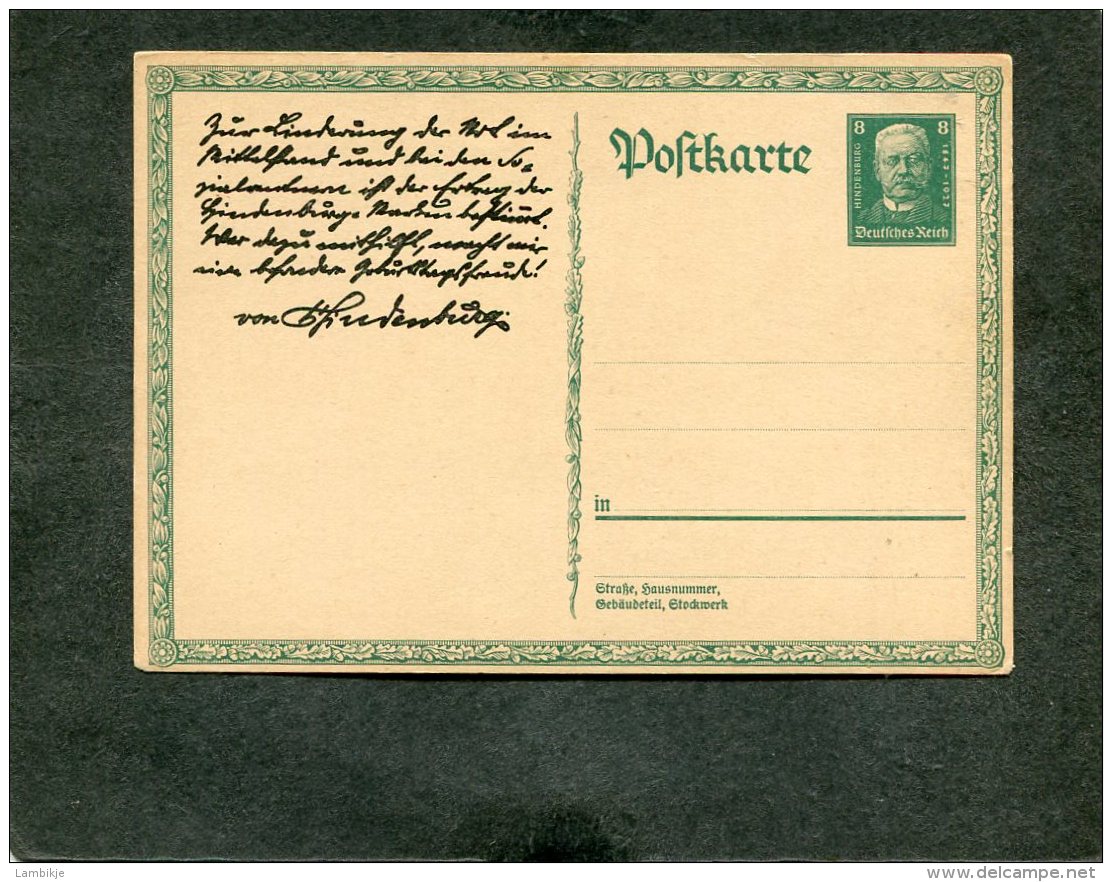 Zur Linderung der Not im
Mittelstand und bei den So-
zialrentnern ist der Ertrag der
Hindenburg-Marken bestimmt.
Wer dazu mithilft, macht mir
eine besondere Geburtstagsfreude!
von Hindenburg.
Postkarte
8 8
HINDENBURG
1847-1927
Deutsches Reich
in
Straße, Hausnummer,
Gebäudeteil, Stockwerk
Lambikje
www.delcampe.net